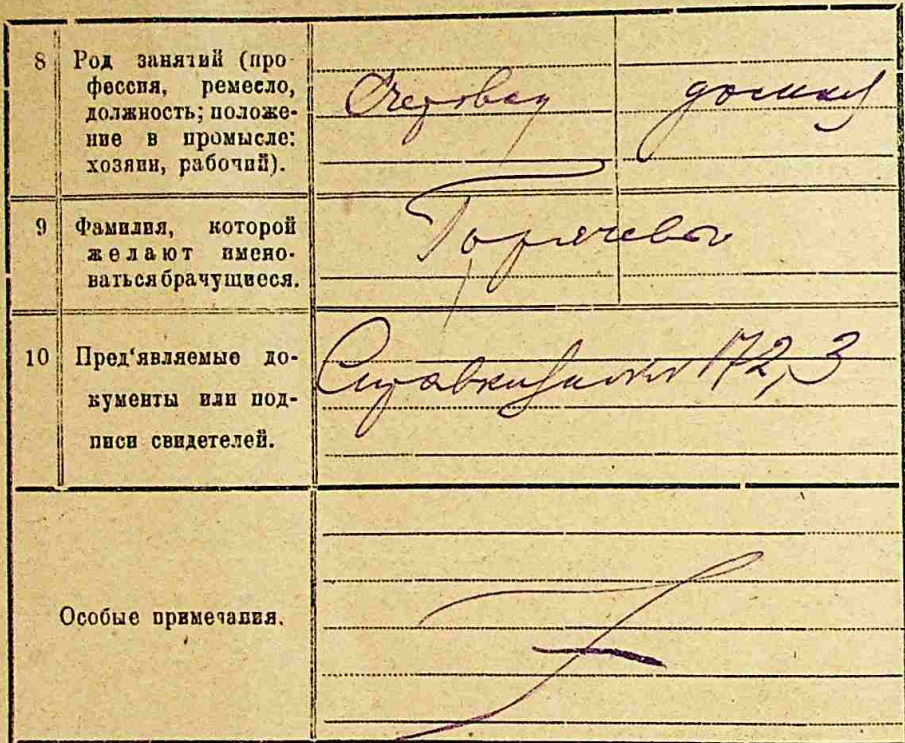 8 Род занятий (про-
фессия, ремесло,
должность; положе-
ние в промысле:
хозяин, рабочий).
9 Фамилия, которой
желают имено-
ваться брачущиеся.
Горячевы
10 Пред'являемые до-
кументы или под-
писи свидетелей.
Справки 172, 3
Особые примечания.